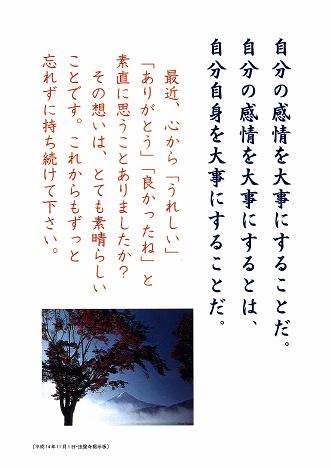 自分の感情を大事にすることだ。
自分の感情を大事にするとは、
自分自身を大事にすることだ。
最近、心から「うれしい」
「ありがとう」「良かったね」と
素直に思うことありましたか?
その想いは、とても素晴らしい
ことです。これからもずっと
忘れずに持ち続けて下さい。
(平成14年11月1日・法華寺掲示板)